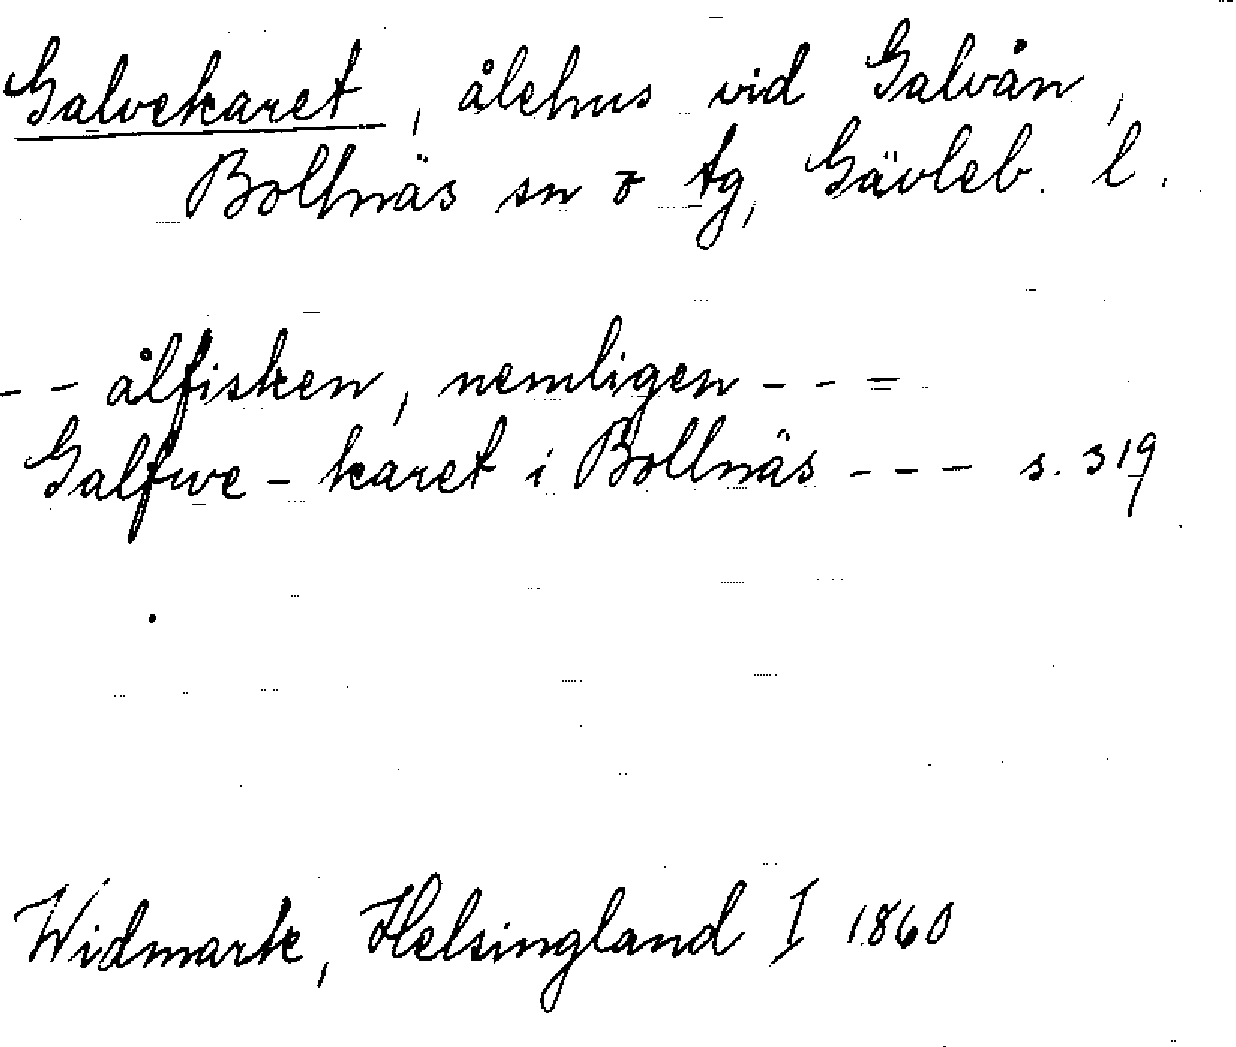 Galvekaret, ålehus vid Galvån,
Bollnäs sn o tg, Gävleb. l.
-- ålfisken, nemligen -- =
Galfwe-karet i Bollnäs --- s. 319
Widmark, Helsingland I 1860